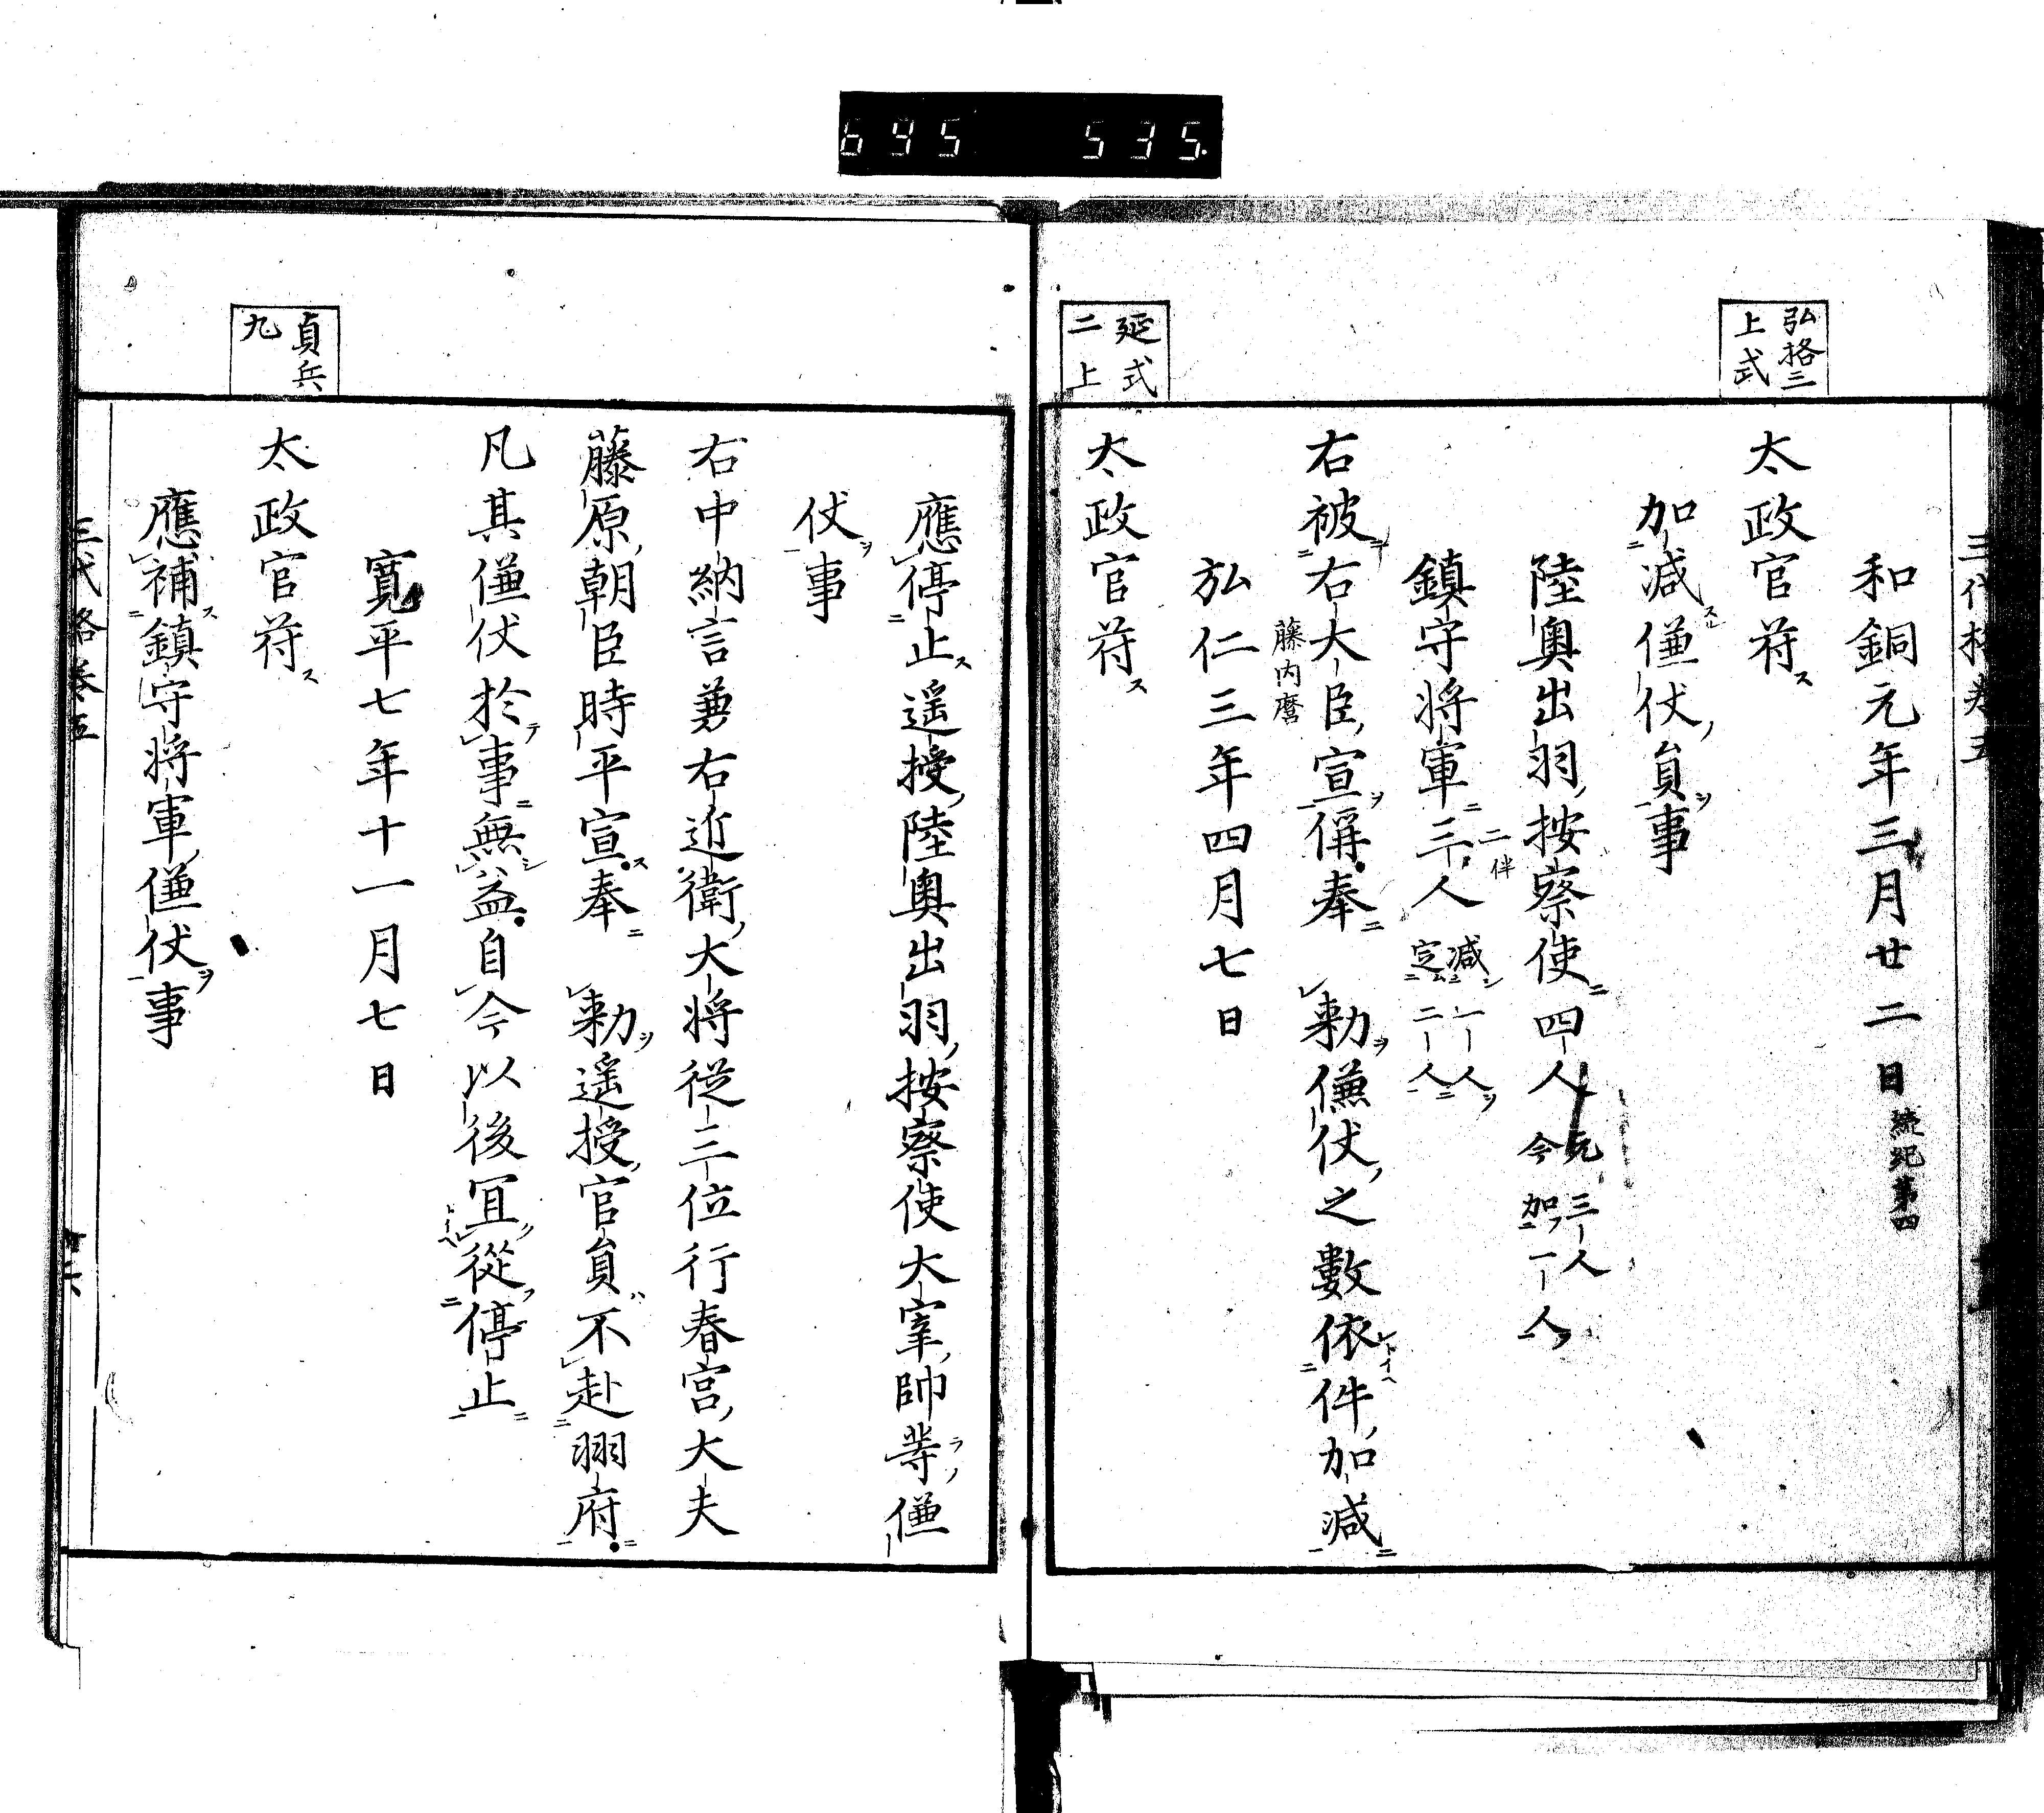 695 535.
三代格卷五
弘格三
上式
和銅元年三月廿二日 続紀第四
太政官符ス
加減傔仗員事
陸奥出羽按察使四人 元三人 今加一人
鎮守将軍三人 減一人 定二人
二件
右被右大臣宣偁奉 勅傔仗之數依件加減
藤内麿
弘仁三年四月七日
延式
二上
太政官符ス
應停止遥授陸奥出羽按察使大宰帥等傔
仗事
右中納言兼右近衛大将従三位行春宮大夫
藤原朝臣時平宣奉 勅遥授官員不赴羽府
凡其傔仗於事無益自今以後冝從停止
寛平七年十一月七日
貞兵
九
太政官符ス
應補鎮守将軍傔仗事
三代格卷五